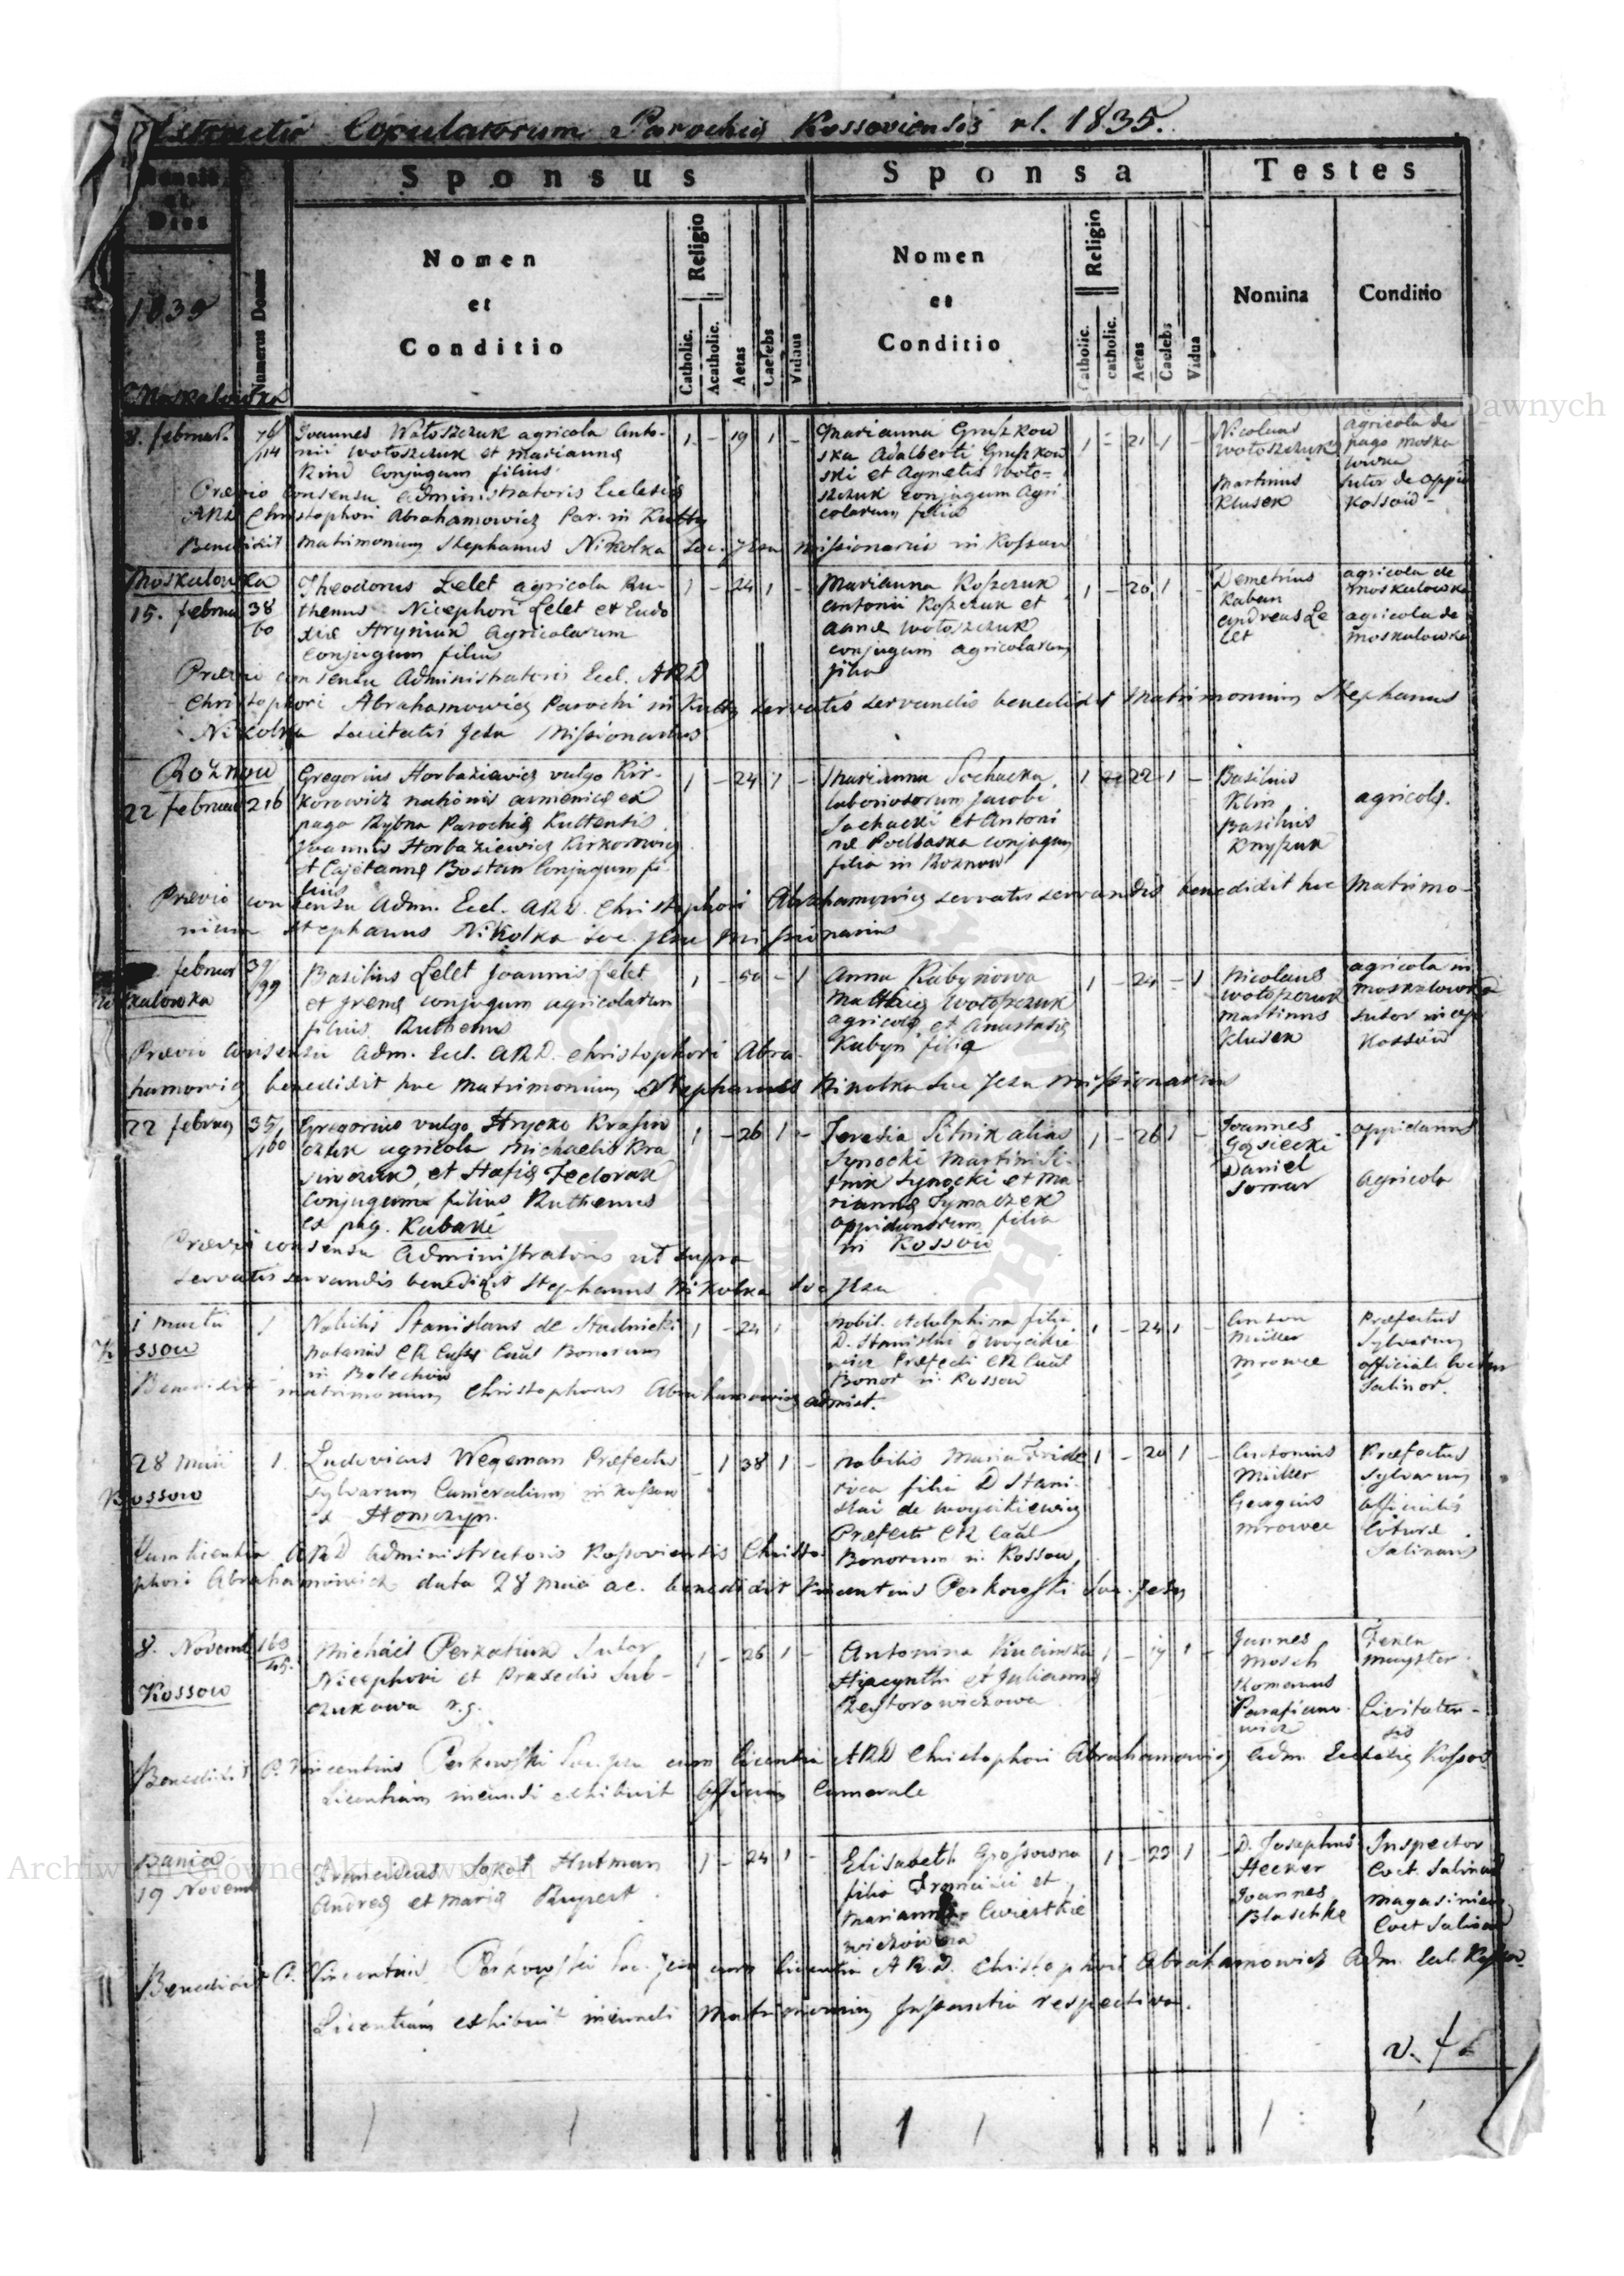 Copulatorum Parochię Kossoviensis 1835.
Sponsus Sponsa Testes
Mensis
et
Dies
Numerus Domus
Nomen
et
Conditio
Religio
Catholic.
Acatholic.
Aetas
Caelebs
Viduus
Nomen
et
Conditio
Religio
Catholic.
catholic.
Aetas
Caelebs
Vidua
Nomina
Conditio
1835
Moskalowka
8. februar.
Joannes Wołoszczuk agricola Anto-
nii Wołoszczuk et Mariannę
Conjugum filius
1 - 19 1 -
Marianna Gruszkow
ska Adalberti Gruszkow
ski et Agnetis Woło-
szczuk conjugum agri
colarum filia
1 - 21 1 -
Nicolaus
Wołoszczuk
Martinus
Klusek
agricola de
pago Moska
lowka
Sutor de oppid
Kossow
Prævio Consensu Administratoris Ecclesię
ARD Christophori Abrahamowicz Par. in Kutty
Benedixit Matrimonium Stephanus Nikolka Soc. Jesu Missionarius in Kossow
Moskulowka
15. februar
38
60
Theodorus Lelet agricola Ru-
thenus Nicephori Lelet et Eudo
xiæ Hryniuk agricolarum
Conjugum filius
1 - 24 1 -
Marianna Koszczuk
Antonii Koszczuk et
Annæ Wołoszczuk
conjugum agricolarum
filia
1 - 20 1 -
Demetrius
Kaban
Andreas Le
let
agricola de
Moskulowka
agricola de
Moskulowka
Prævio consensu Administratoris Eccl. ARD
Christophori Abrahamowicz Parochi in Kutty servatis servandis benedixit Matrimonium Stephanus
Nikolka Societatis Jesu Missionarius
Rożnow
22 februar 216
Gregorius Horbaziewicz vulgo Kir-
korowicz nationis armenicę ex
pago Rybna Parochię Kuttensis
Joannis Horbaziewicz Kirkorowicz
et Cajetannę Bostan Conjugum fi
lius
1 - 24 1 -
Marianna Sochacka
laboriosorum Jacobi
Sochacki et Antoni
næ Podlaska conjugum
filia in Rożnow
1 22 1 -
Basilius
Klin
Basilius
Knyszuk
agricolę.
Prævio consensu Adm. Eccl. ARD. Christophori Abrahamowicz servatis servandis benedixit hoc Matrimo-
nium Stephanus Nikolka Soc. Jesu Missionarius
februar 39/99
Moskalowka
Basilius Lelet Joannis Lelet
et Irenę conjugum agricolarum
filius Ruthenus
1 - 50 - 1
Anna Kabynowa
Mathię Wołoszczuk
agricolę et Anastasię
Kabyn filia
1 - 24 - 1
Nicolaus
Wołoszczuk
Martinus
Klusek
agricola in
Moskalowka
Sutor in opp
Kossow
Prævio Consensu Adm. Eccl. ARD. Christophori Abra-
hamowicz benedixit hoc Matrimonium Stephanus Nikolka Soc Jesu Missionarius
22 februar 35/100
Gregorius vulgo Hrycko Krasiw
czuk agricola Michaelis Kra
siwczuk et Hafię Fedorak
Conjugum filius Ruthenus
ex pag. Kabake
1 - 26 1 -
Teresia Sitnik alias
Synocki Martini Si-
tnik Synocki et Ma-
riannę Symaczek
oppidanorum filia
in Kossow
1 - 26 1 -
Joannes
Gąsiecki
Daniel
oppidanus
agricola
Prævio consensu Administratoris ut supra
servatis servandis benedixit Stephanus Nikolka Soc Jesu
1 Martii 1
Kossow
Nobilis Stanislaus de Stadnicki
Bonorum
in Bolechow
1 - 24 1
Nobil. Adolphina filia
D. Stanislai Woycikie
wicz Præfecti CR Caāl
Bonor in Kossow
1 - 24 1 -
Anton
Müller
Mrowec
Præfectus
Sylvarum
Salinor.
Benedixit matrimonium Christophorus Abrahamowicz admist.
28 Maii 1.
Kossow
Ludovicus Wegeman Præfectus
Sylvarum Cameralium in Kossow
ex Homczyn.
- 1 38 1 -
Nobilis Maria Fride
rica filia D Stani-
slai de Woycikiewicz
Præfecti CR Caāl
Bonorum in Kossow
1 - 20 1 -
Antonius
Müller
Georgius
Mrowec
Præfectus
Sylvarum
officialis
Salinaris
Cum licentia ARD Administratoris Kossoviensis Christo-
phori Abrahamowicz data 28 Maii ac. benedixit Vincentius Perkowski Soc. Jesu
8. Novemb 163
Kossow
Michael Perkatiuk Sutor
Nicephori et Praxedis Sub-
czukowa
1 - 26 1 -
Antonina
Hiacynthi et Juliannę
Nestorowiczowa
1 - 19 1 -
Jannes
Mosch
Romanus
Parafiano-
wicz
mayster
Civitaten-
sis
Benedixit P. Vincentius Perkowski Soc. Jesu cum licentia ARD Christophori Abrahamowicz Adm. Ecclesię Kossov
Licentiam ineundi exhibuit Officium Camerale
Bania
19 Novemb
Franciscus Sokoł Hutman
Andreę et Marię Rupert
1 - 24 1 -
Elisabeth Grossowna
filia Francisci et
Mariannę
1 - 23 1 -
D. Josephus
Hecker
Joannes
Blaschke
Inspector
Coct. Salinar
Magasinier
Coct Salinar
Benedixit P. Vincentius Perkowski Soc. Jesu cum licentia ARD. Christophori Abrahamowicz Adm. Eccl. Kossow
Licentiam exhibuit ineundi Matrimonium Instantia respectiva.
Archiwum Główne Akt Dawnych
Archiwum Główne Akt Dawnych